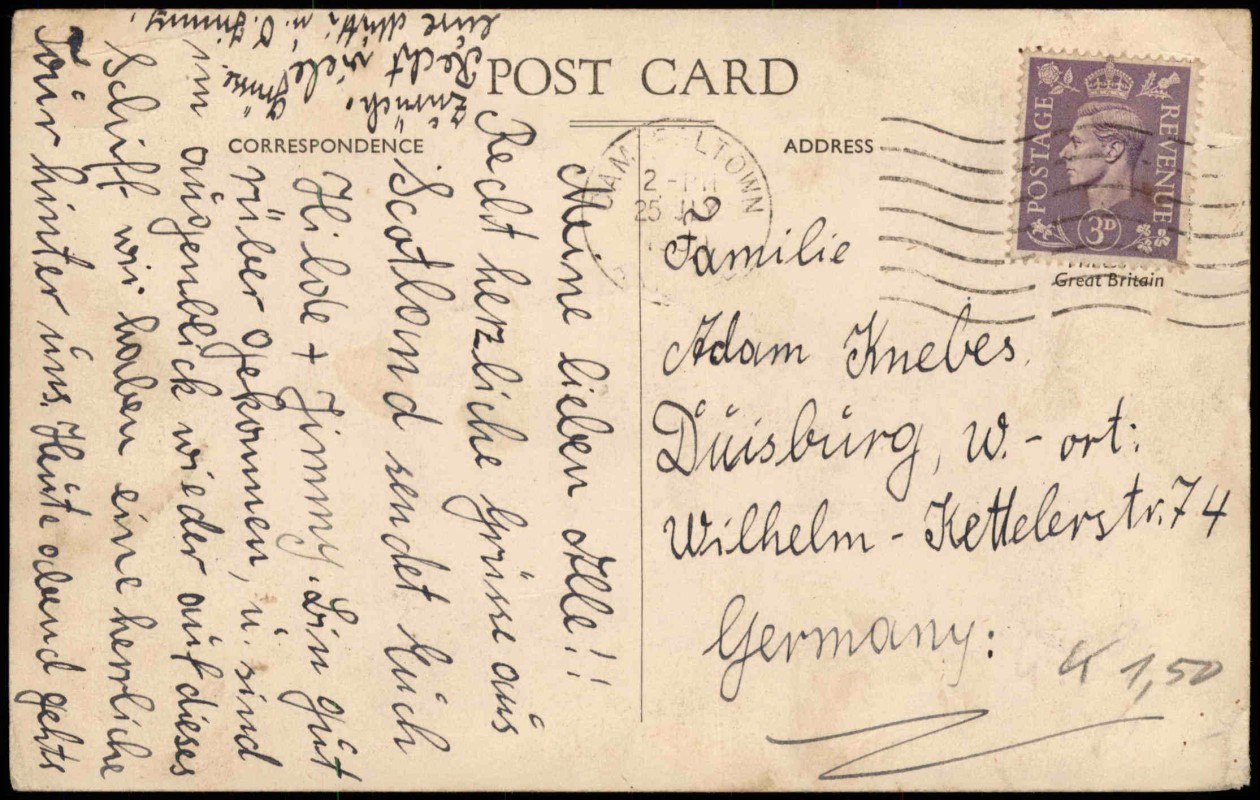 POST CARD
CORRESPONDENCE
ADDRESS
Meine lieben Alle!!
Recht herzliche Grüsse aus
Scotland sendet Euch
Hilde + Jimmy. Bin gut
rüber gekommen, u. sind
im augenblick wieder auf dieses
Schiff wir haben eine herrliche
Tour hinter uns. Heute abend gehts
zurück.
Recht viele
Grüsse.
eure Hilde u. Jimmy.
2 - PM
25 JLY
POSTAGE
REVENUE
3D
Great Britain
Familie
Adam Knebes.
Duisburg, W. - ort:
Wilhelm - Kettelerstr. 74
Germany:
1,50